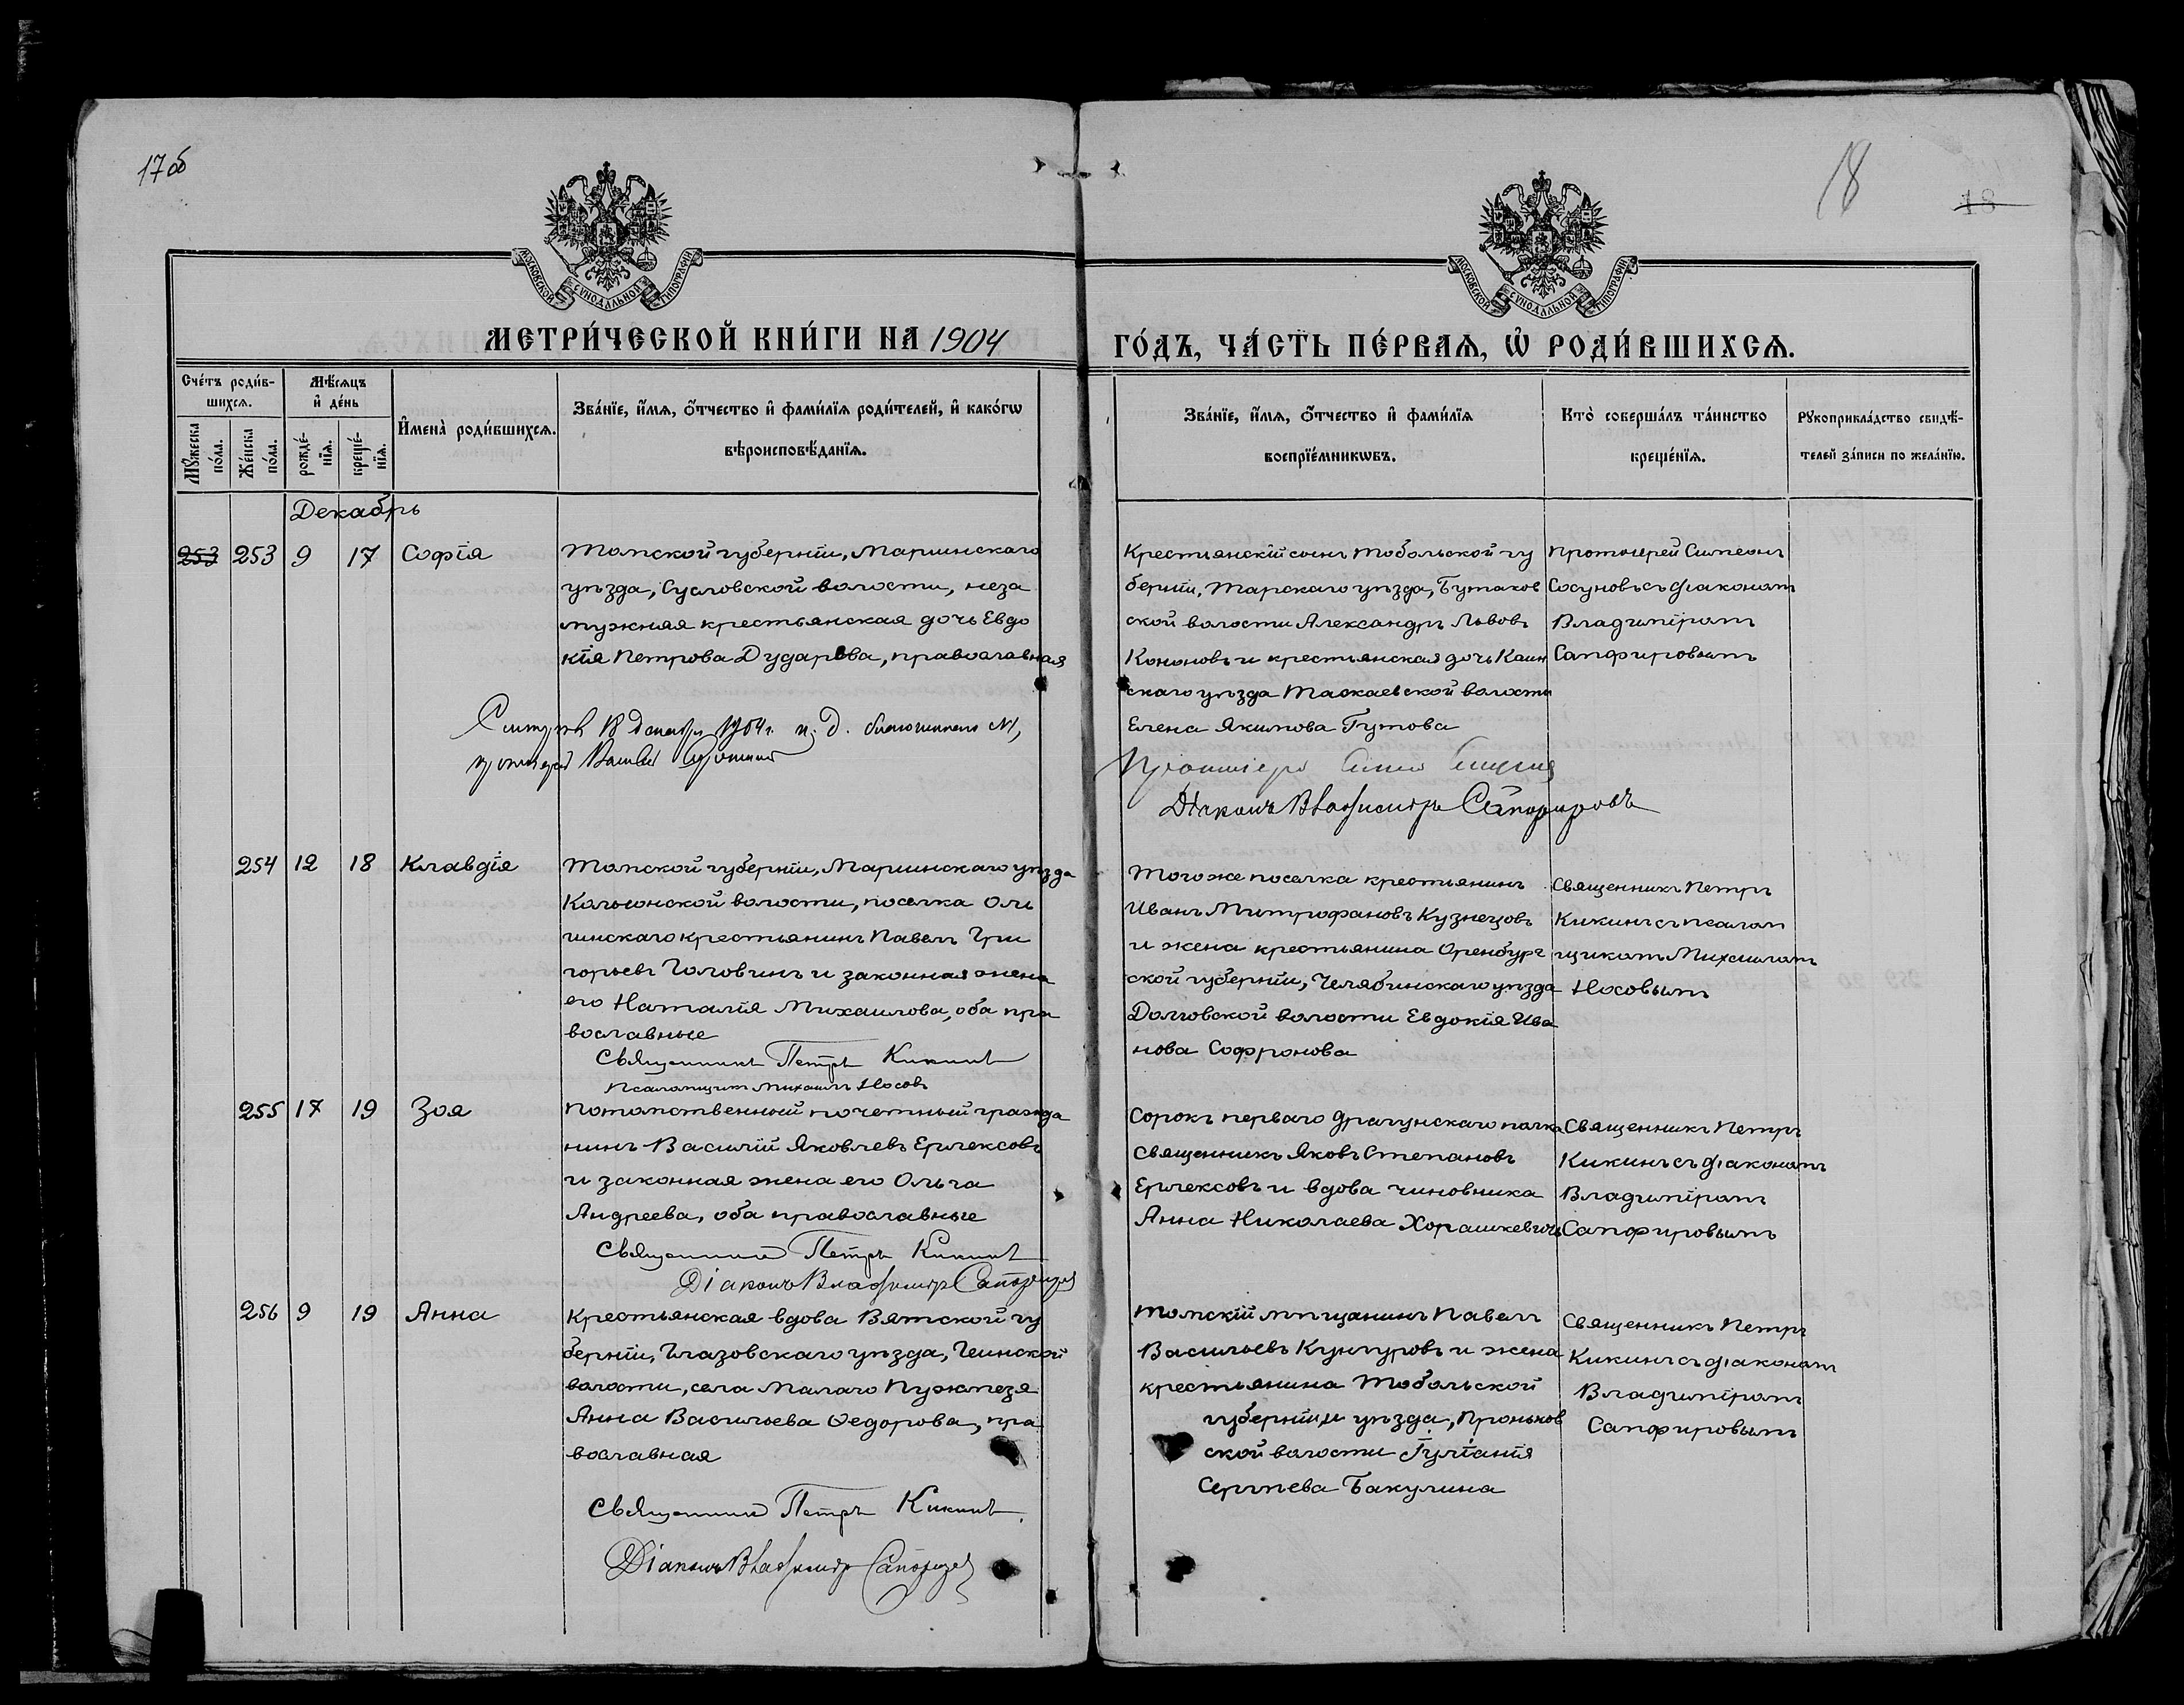 17 об
18
18
МОСКОВСКОЙ СѴНОДАЛЬНОЙ ТИПОГРАФІИ
МОСКОВСКОЙ СѴНОДАЛЬНОЙ ТИПОГРАФІИ
МЕТРИ́ЧЕСКОЙ КНИ́ГИ НА 1904
ГО́ДЪ, ЧА́СТЬ ПЕ́РВАЯ, Ѡ҆ РОДИ́ВШИХСЯ.
Сче́тъ роди́в-
шихся.
Мѣ́сяцъ
и҆ де́нь
Мꙋ́жеска по́ла.
Же́нска по́ла.
рожде́-нїя.
креще́-нїя.
И҆мена̀ роди́вшихся.
Зва́нїе, и҆́мя, ѻ҆́тчество и҆ фами́лїя роди́телей, и҆ како́гѡ
вѣроисповѣ́данїя.
Зва́нїе, и҆́мя, ѻ҆́тчество и҆ фами́лїя
воспрїе́мникѡвъ.
Кто̀ соверша́лъ та́инство
креще́нїя.
Рꙋкоприкла́дство свидѣ́-
телей за́писи по жела́нїю.
Декабрь
253 253 9 17 Софія
Томской губерніи, Маріинскаго
уѣзда, Сусловской волости, неза
мужняя крестьянская дочь Евдо
кія Петрова Дударева, православная
Крестьянскій сынъ Тобольской гу
берніи, Тарскаго уѣзда, Бутаков
ской волости Александръ Львовъ
Кононовъ и крестьянская дочь Каин
скаго уѣзда Таскаевской волости
Елена Якимова Гутова
Протоіерей Симеонъ
Сосуновъ съ діакономъ
Владиміромъ
Сапфировымъ
18 декабря 1904 г. и. д. благочиннаго №1,
протоіерей
Протоіерей
Діаконъ Владиміръ Сапфировъ
254 12 18 Клавдія
Томской губерніи, Маріинскаго уѣзда
Кольонской волости, поселка Оль
гинскаго крестьянинъ Павелъ Гри
горьевъ Головинъ и законная жена
его Наталія Михаилова, оба пра
вославные
Священникъ Петръ Кикинъ
Псаломщикъ Михаилъ Носовъ
Того же поселка крестьянинъ
Иванъ Митрофановъ Кузнецовъ
и жена крестьянина Оренбург
ской губерніи, Челябинскаго уѣзда
Долговской волости Евдокія Ива
нова Софронова
Священникъ Петръ
Кикинъ съ псалом
щикомъ Михаиломъ
Носовымъ
255 17 19 Зоя
Потомственный почетный гражда
нинъ Василій Яковлевъ Ерлексовъ
и законная жена его Ольга
Андреева, оба православные
Священникъ Петръ Кикинъ
Діаконъ Владиміръ Сапфировъ
Сорокъ перваго драгунскаго полка
священникъ Яковъ Степановъ
Ерлексовъ и вдова чиновника
Анна Николаева Хорашкевичъ
Священникъ Петръ
Кикинъ съ діакономъ
Владиміромъ
Сапфировымъ
256 9 19 Анна
Крестьянская вдова Вятской гу
берніи, Глазовскаго уѣзда, Гыинской
волости, села Малаго Пужмезя
Анна Васильева Ѳедорова, пра
вославная
Священникъ Петръ Кикинъ
Діаконъ Владиміръ Сапфировъ
Томскій мѣщанинъ Павелъ
Васильевъ Кунгуровъ и жена
крестьянина Тобольской
губерніи и уѣзда, Проньков
ской волости Іуліанія
Сергѣева Бакулина
Священникъ Петръ
Кикинъ съ діакономъ
Владиміромъ
Сапфировымъ